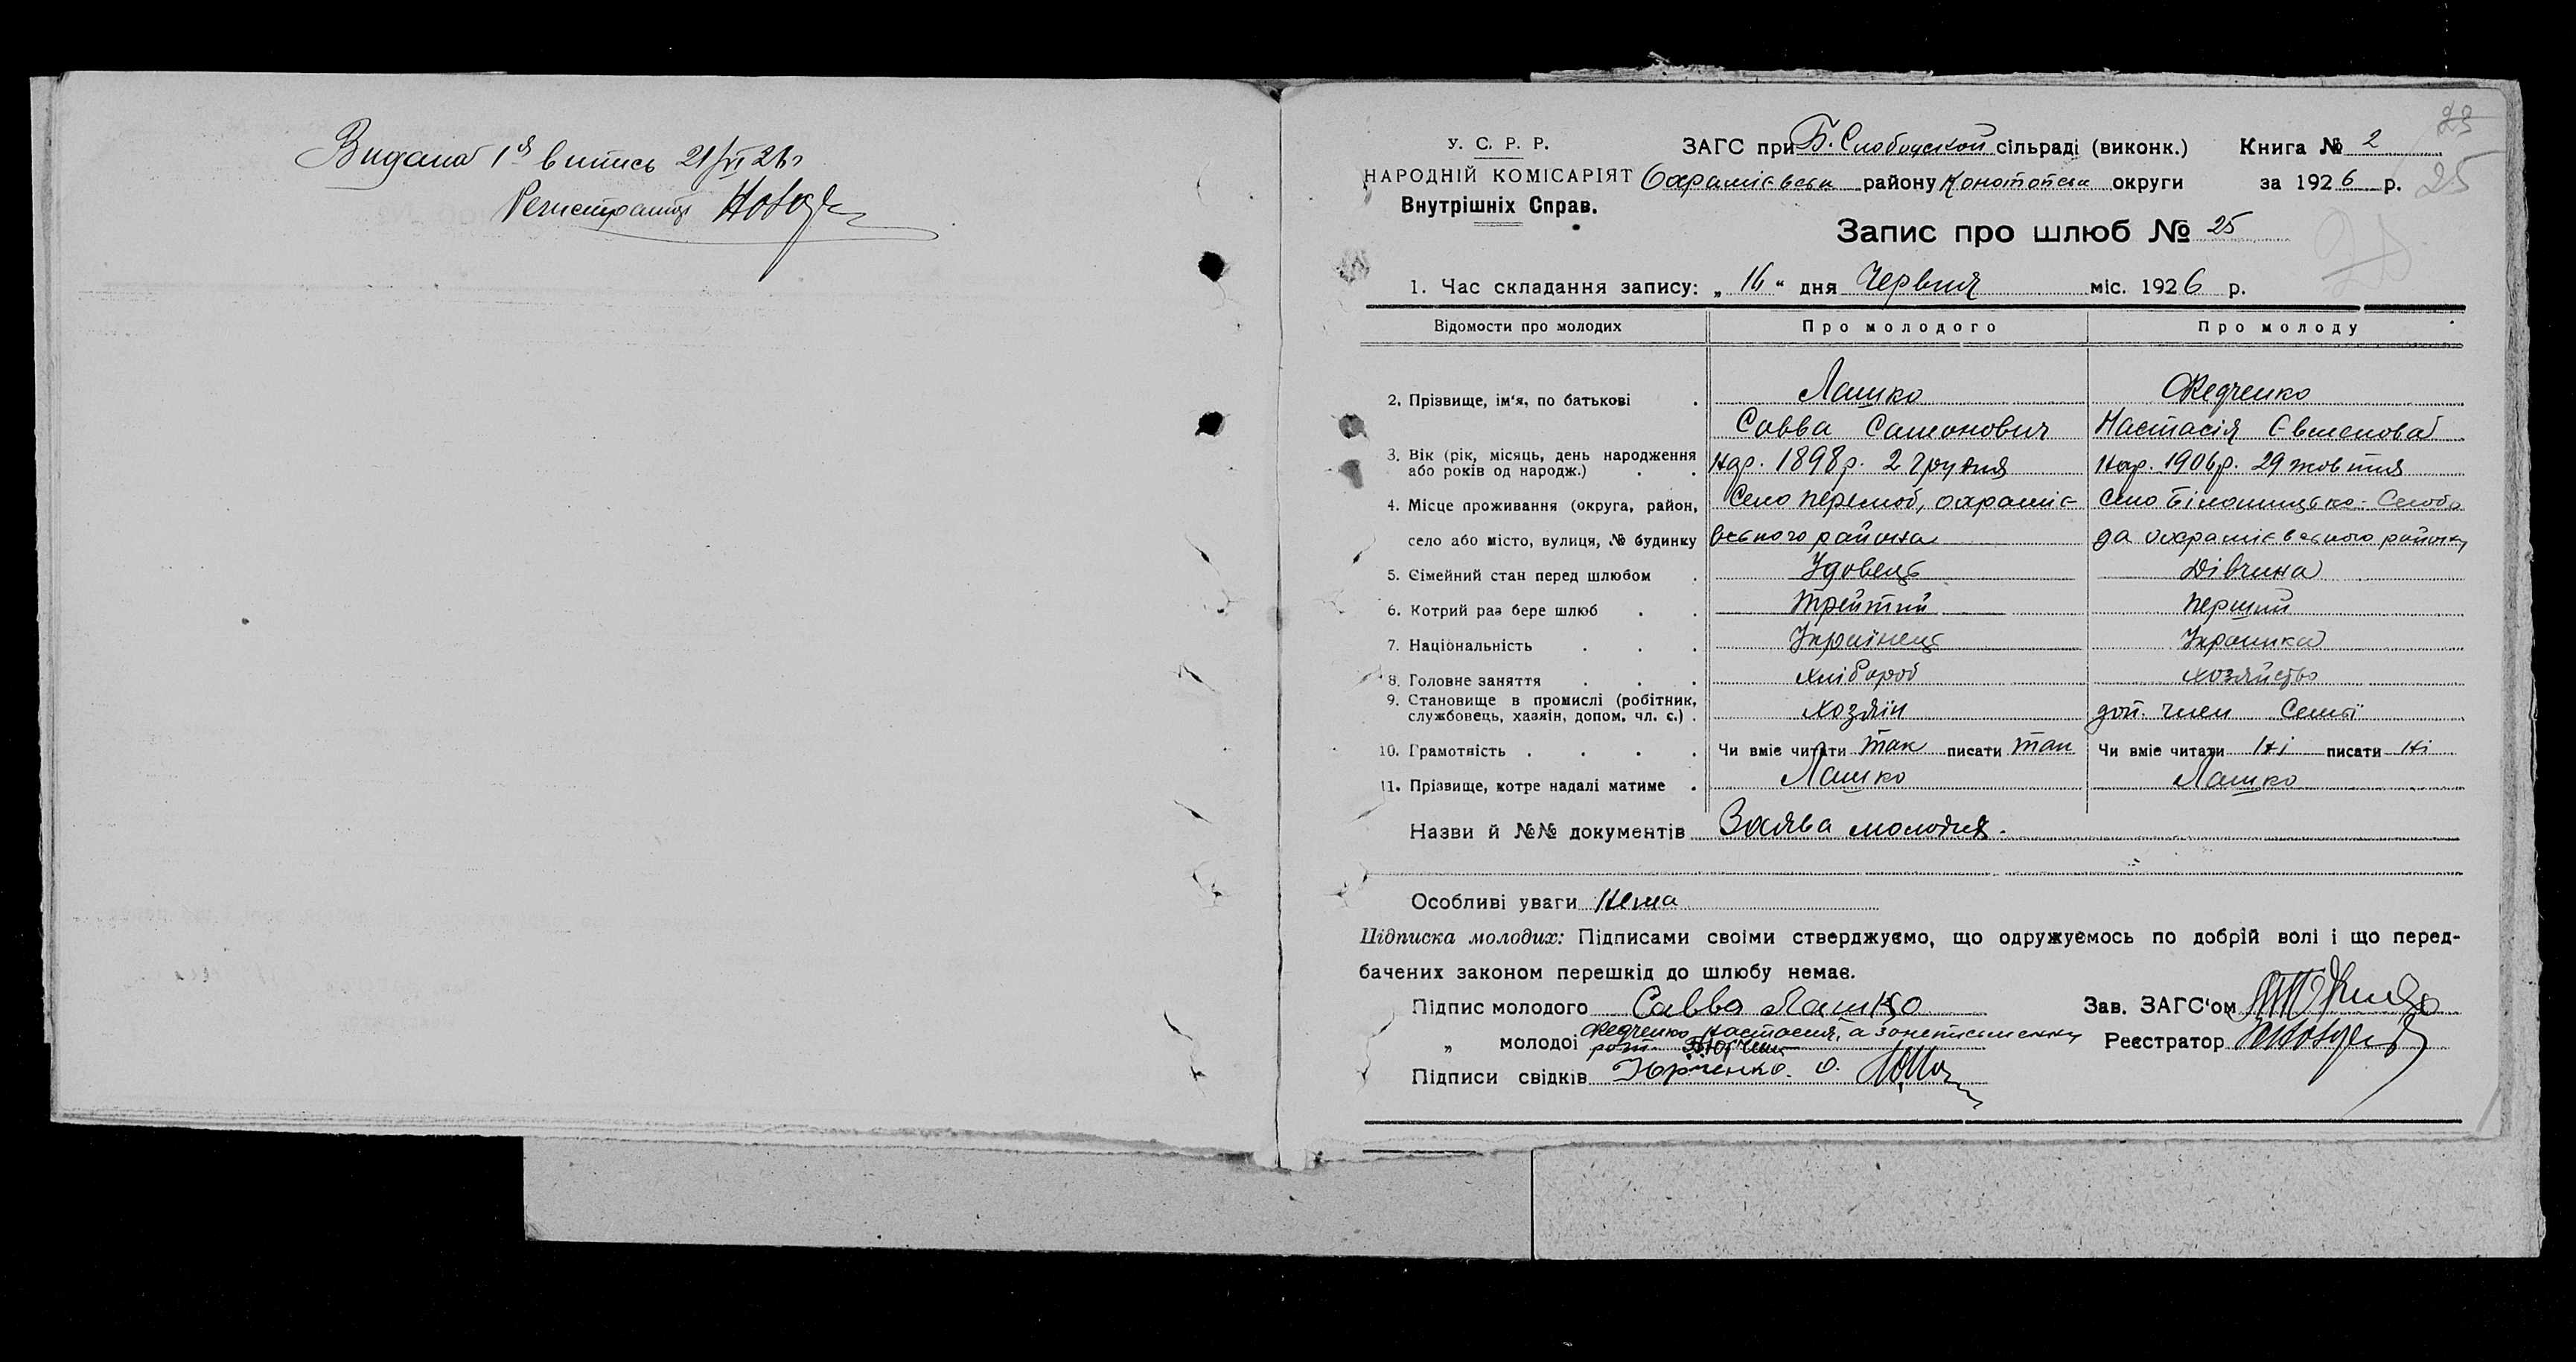 Видана 1ª витись 21/VI 26г
Регистратор
23
25
У. С. Р. Р.
ЗАГС при Б. Слободской сільраді (виконк.)
Книга № 2
НАРОДНІЙ КОМІСАРІЯТ
Охрамієвськ району Конотопськ округи
за 1926 р.
Внутрішніх Справ.
Запис про шлюб № 25
1. Час складання запису: „ 16 “ дня Червня міс. 1926 р.
Відомости про молодих Про молодого Про молоду
2. Прізвище, ім'я, по батькові . Лашко Федченко
Савва Самонович Настасія Євменова
3. Вік (рік, місяць, день народження
або років од народж.) . . нар. 1898р. 2 Грудня нар. 1906р. 29 жовтня
4. Місце проживання (округа, район, Село Перемоб, охраміє- село Білошицько-Слобо
село або місто, вулиця, № будинку вського района да охраміевського району
5. Сімейний стан перед шлюбом . Удовець Дівчина
6. Котрий раз бере шлюб . . Трейтий Перший
7. Національність . . . Українець Украинка
8. Головне заняття . . . хлібороб хозяйство
9. Становище в промислі (робітник,
службовець, хазяін, допом. чл. с.) . Хозяін доп. член Семьї
10. Грамотність . . . . Чи вміє читати так писати так Чи вміє читати ні писати ні
11. Прізвище, котре надалі матиме . Лашко Лашко
Назви й №№ документів Заява молодих.
Особливі уваги нема
Підписка молодих: Підписами своїми стверджуємо, що одружуємось по добрій волі і що перед-
бачених законом перешкід до шлюбу немає.
Підпис молодого Савва Лашко Зав. ЗАГС'ом
„ молодоі Федченко Настасия, а за неписьменну
Реєстратор
Підписи свідків Юрченко. О.